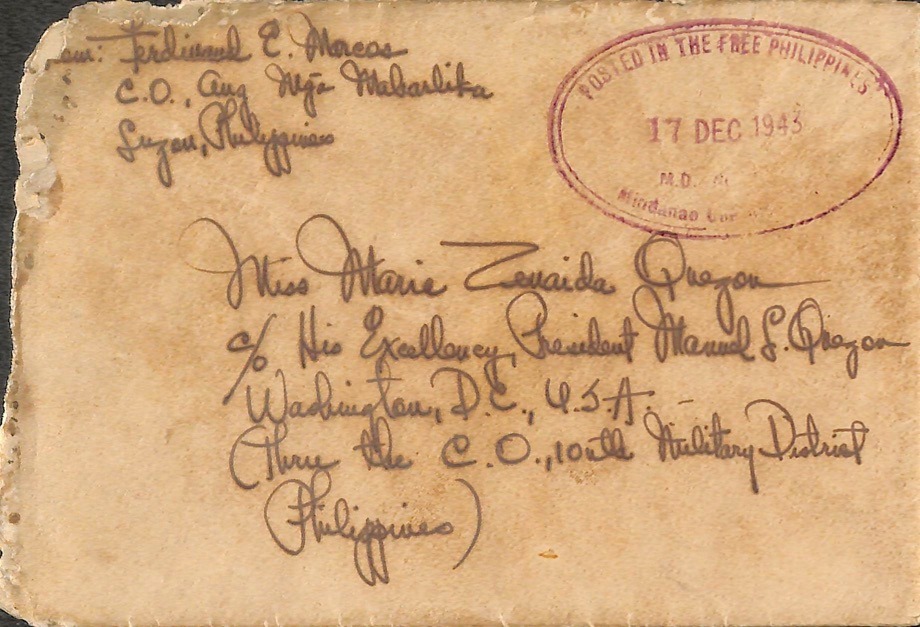 Ferdinand E. Marcos
C.O., Ang Mga Maharlika
Luzon, Philippines
POSTED IN THE FREE PHILIPPINES
17 DEC 1943
M.D.
Mindanao
Miss Maria Zenaida Quezon
c/o His Excellency, President Manuel L. Quezon
Washington, D.C., U.S.A. -
(Thru the C.O., 10th Military District
Philippines)